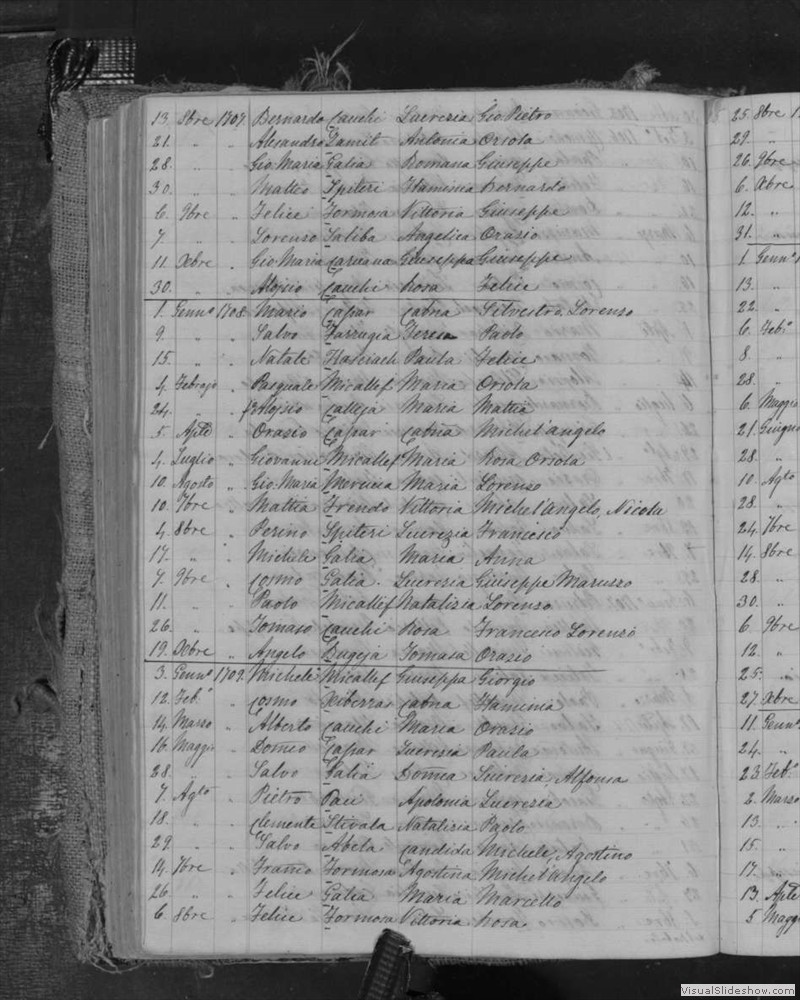 13. 8bre 1707 Bernardo Cauchi Lucrezia Gio Pietro
21. " " Alesandro Damit Antonia Orsola
28. " " Gio Maria Galia Romana Giuseppe
30. " " Matteo Spiteri Flaminia Bernardo
6. 9bre " Felice Formosa Vittoria Giuseppe
7. " " Lorenzo Saliba Angelica Orasio
11. Xbre " Gio Maria Caruana Giuseppa Giuseppe
30. " " Alojsio Cauchi Rosa Felice
1. Gennº 1708 Mario Caspar Catnã Silvestro Lorenzo
9. " " Salvo Farrugia Teresa Paolo
15. " " Natale Paula Felice
4. Febrajo " Pasquale Micallef Maria Orsola
24. " " Alojsio Calleja Maria Mattia
5. Aple " Orasio Caspar Catnã Michel'angelo
4. Luglio " Giovanni Micallef Maria Rosa Orsola
10. Agosto " Gio Maria Maria Lorenzo
10. 7bre " Mattia Frendo Vittoria Michel'Angelo, Nicola
4. 8bre " Perino Spiteri Lucrezia Francesco
17. " " Michele Galia Maria Anna
7. 9bre " Cosmo Galia Lucresia Giuseppe Marusso
11. " " Paolo Micallef Natalizia Lorenzo
26. " " Tomaso Cauchi Rosa Francesco Lorenzo
19. Xbre " Angelo Bugeja Tomasa Orasio
3. Gennº 1709. Michele Micallef Giuseppa Giorgio
12. Febº " Cosmo Xiberras Catnã Flaminia
14. Marzo " Alberto Cauchi Maria Orasio
16. Maggio " Domco Caspar Lucresia Paula
28. " " Salvo Galia Domca Lucresia, Alfonsa
7. Agto " Pietro Pau Apolonia Lucresia
18. " " Clemente Stivala Natalizia Paolo
29 " " Salvo Abela Candida Michele, Agostino
14. 7bre " Franco Formosa Agostina Michel'angelo
26 " " Felice Galia Maria Marcello
6. 8bre " Felice Formosa Vittoria Rosa
25. 8bre 1
29. "
26. 9bre
6. Xbre
12. "
31. "
1. Gennº 1
13. "
22. "
6. Febº
8. "
28. "
6. Maggio
21. Giugno
28. "
10. Agto
28. "
24. 7bre
14. 8bre
28. "
30. "
6. 9bre
12. "
25. "
27. Xbre
11. Gennº
24. "
23. Febº
2. Marzo
13. "
15. "
17. "
13. Aple
5. Maggi
VisualSlideshow.com